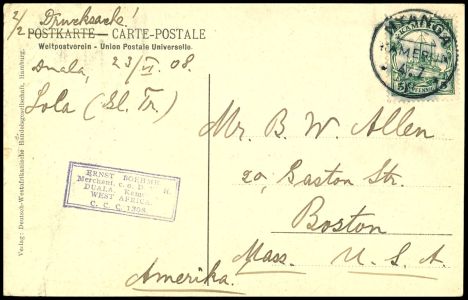 2/2 Drucksache!
POSTKARTE — CARTE-POSTALE
Weltpostverein - Union Postale Universelle
Duala, 23/VI. 08.
Lola (El. Tr.)
KAMERUN
5 PFENNIG 5
Mr. B. W. Allen
20, Gaston Str.
Boston
Mass. U. S. A.
Amerika.
ERNST BOEHME
Merchant, c. o. D. H.
DUALA, Kam.
WEST AFRICA.
C. C. C. 1308
Verlag: Deutsch-Westafrikanische Handelsgesellschaft, Hamburg.